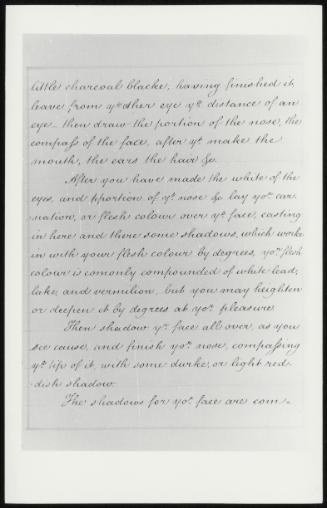 little charcoal blacke, having finished it,
leave from yᵉ other eye yᵉ distance of an
eye_ then draw the portion of the nose, the
compaſs of the face, after yᵗ make the
mouth, the ears the hair &c.
After you have made the white of the
eyes, and pportion of yᵉ nose &c lay yoʳ car
nation, or flesh colour over yᵉ face, casting
in here and there some shadows, which worke
in with your flesh colour by degrees, yoʳ flesh
colour is comonly compounded of white lead,
lake, and vermilion, but you may heighten
or deepen it by degrees at yoʳ pleasure
Then shadow yᵉ face all over, as you
see cause, and finish yoʳ nose, compaſsing
yᵉ tip of it, with some darke, or light red
dish shadow.
The shadows for yoʳ face are com=